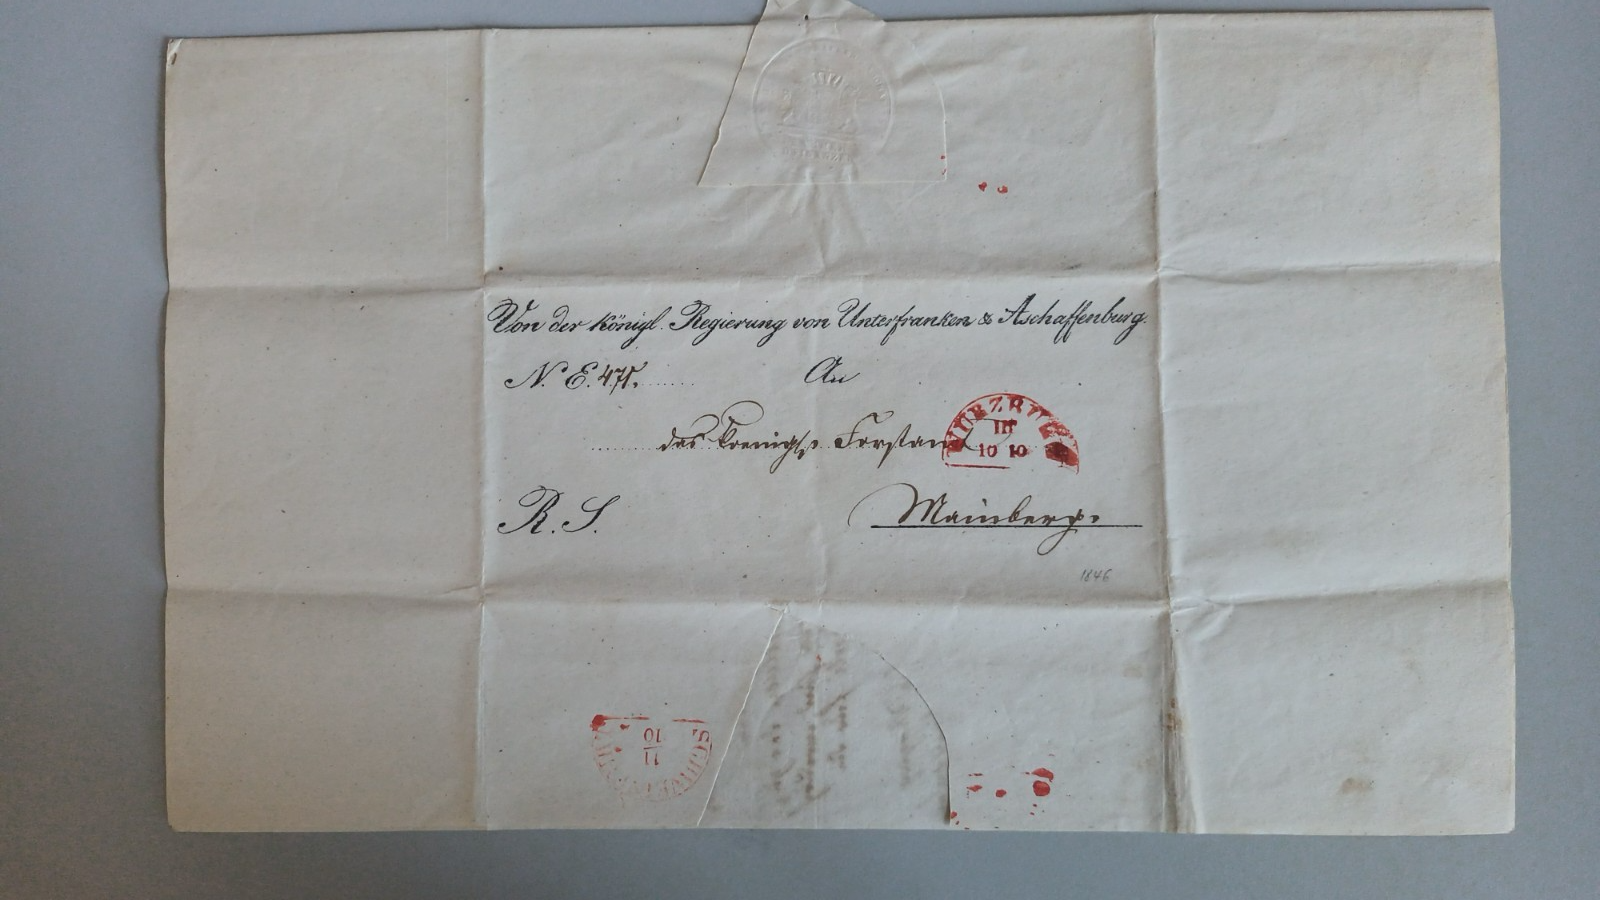 Von der Königl. Regierung von Unterfranken & Aschaffenburg.
N. E. 471.
An
das Koenigl. Forstamt
WÜRZBURG
III
10 10
R. S.
Mainberg.
1846
SCHWEINFURT
11
10